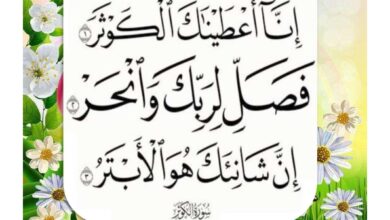 إِنَّآ أَعْطَيْنَٰكَ ٱلْكَوْثَرَ ١
فَصَلِّ لِرَبِّكَ وَٱنْحَرْ ٢
إِنَّ شَانِئَكَ هُوَ ٱلْأَبْتَرُ ٣
سُورَةُ الكَوْثَر